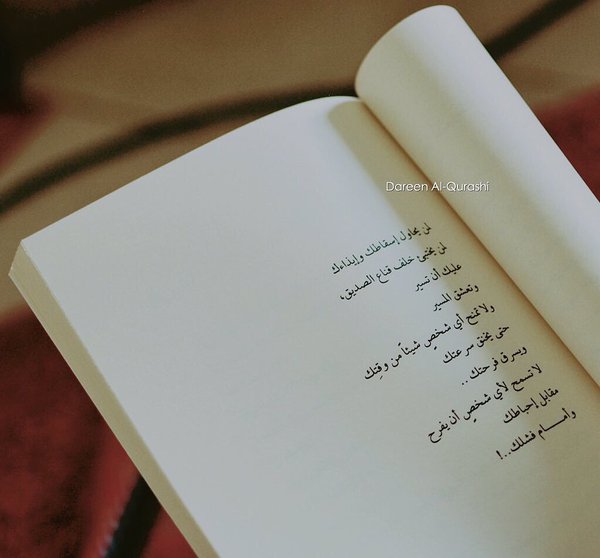 Dareen Al-Qurashi
لمن يحاول إسقاطك وإيذاءك
لمن يختبئ خلف قناع الصديق،
عليك أن تسير
وتعشق المسير
ولا تمنح أي شخصٍ شيئاً من وقتِك
حتى يخنق سرعتك
ويسرق فرحتك ..
لا تسمح لأي شخصٍ أن يفرح
مقابل إحباطك
وأمـــام فشلك..!